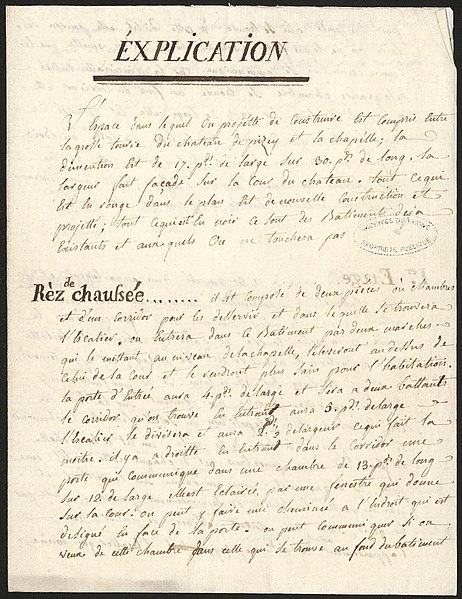 ÉXPLICATION
L'Espace dans lequel On projette de Construire Est Compris Entre
la grosse tourre du chateau de prizey et la chapelle; la
dimention Est de 17. pds. de large Sur 30. pds de long. la
largeur fait façade Sur la Cour du chateau. tout ce qui
Est En rouge dans le plan Est de nouvelle Construction et
projetté; tout ce qui est En noir Ce Sont des Batiments deja
Existants et aux quels On ne touchera pas
PROPRIÉTÉ PUBLIQUE
Rèz de chaussée......... il Est Composé de deux pieces ou chambres
et d'un Corridor pour les désservir et dans le quel Se trouvera
l'Escalier. on Entrera dans ce Batiment par deux marches
qui le mettant au niveau de la chapelle, l'éleveront au dessus de
Celui de la Cour et le rendront plus Sain pour l'habitation.
la porte d'Entrée aura 4. pds. de large et Sera a deux battants
le Corridor qu'on trouve En Entrant aura 5. pds. de large
l'Escalier le divisera et aura 2. pds. ½ de largeur Ce qui fait la
moitié. il y a a droitte En Entrant dans le Corridor une
porte qui Communique dans une chambre de 13. pds. de long
Sur 12. de large. Elle est Eclairée, par une fenestre qui donne
Sur la Cour. on peut y faire une cheminée a l'Endroit qui est
designé En face de la porte. on peut Communiquer Si on
veux de cette chambre dans celle qui Se trouve au fond du batiment